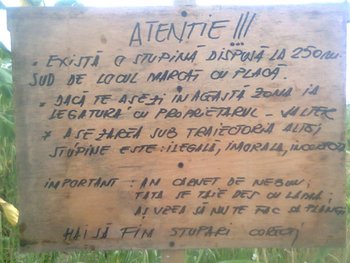 ATENTIE !!!
• EXISTĂ O STUPINĂ DISPUSĂ LA 250m.
SUD DE LOCUL MARCAT CU PLACĂ.
• DACĂ TE AȘEZI ÎN ACEASTĂ ZONĂ IA
LEGATURA CU PROPRIETARUL - WALTER
* AȘEZAREA SUB TRAIECTORIA ALTEI
STUPINE ESTE: ILEGALĂ, IMORALĂ, INCORECTĂ
IMPORTANT: AM CARNET DE NEBUN;
TATA SE TAIE DES CU LAMA;
AȘ VREA SĂ NU TE FAC SĂ PLANGI
HAI SĂ FIM STUPARI CORECȚI